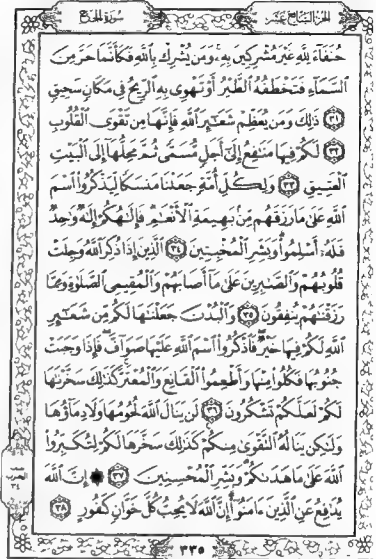 الجزء السابع عشر
سورة الحج
حُنَفَآءَ لِلَّهِ غَيْرَ مُشْرِكِينَ بِهِۦ وَمَن يُشْرِكْ بِٱللَّهِ فَكَأَنَّمَا خَرَّ مِنَ
ٱلسَّمَآءِ فَتَخْطَفُهُ ٱلطَّيْرُ أَوْ تَهْوِى بِهِ ٱلرِّيحُ فِى مَكَانٍ سَحِيقٍ
٣١ ذَٰلِكَ وَمَن يُعَظِّمْ شَعَٰٓئِرَ ٱللَّهِ فَإِنَّهَا مِن تَقْوَى ٱلْقُلُوبِ
٣٢ لَكُمْ فِيهَا مَنَٰفِعُ إِلَىٰٓ أَجَلٍ مُّسَمًّى ثُمَّ مَحِلُّهَآ إِلَى ٱلْبَيْتِ
ٱلْعَتِيقِ ٣٣ وَلِكُلِّ أُمَّةٍ جَعَلْنَا مَنسَكًا لِّيَذْكُرُوا۟ ٱسْمَ
ٱللَّهِ عَلَىٰ مَا رَزَقَهُم مِّنۢ بَهِيمَةِ ٱلْأَنْعَٰمِ فَإِلَٰهُكُمْ إِلَٰهٌ وَٰحِدٌ
فَلَهُۥٓ أَسْلِمُوا۟ وَبَشِّرِ ٱلْمُخْبِتِينَ ٣٤ ٱلَّذِينَ إِذَا ذُكِرَ ٱللَّهُ وَجِلَتْ
قُلُوبُهُمْ وَٱلصَّٰبِرِينَ عَلَىٰ مَآ أَصَابَهُمْ وَٱلْمُقِيمِى ٱلصَّلَوٰةِ وَمِمَّا
رَزَقْنَٰهُمْ يُنفِقُونَ ٣٥ وَٱلْبُدْنَ جَعَلْنَٰهَا لَكُم مِّن شَعَٰٓئِرِ
ٱللَّهِ لَكُمْ فِيهَا خَيْرٌ فَٱذْكُرُوا۟ ٱسْمَ ٱللَّهِ عَلَيْهَا صَوَآفَّ فَإِذَا وَجَبَتْ
جُنُوبُهَا فَكُلُوا۟ مِنْهَا وَأَطْعِمُوا۟ ٱلْقَانِعَ وَٱلْمُعْتَرَّ كَذَٰلِكَ سَخَّرْنَٰهَا
لَكُمْ لَعَلَّكُمْ تَشْكُرُونَ ٣٦ لَن يَنَالَ ٱللَّهَ لُحُومُهَا وَلَا دِمَآؤُهَا
وَلَٰكِن يَنَالُهُ ٱلتَّقْوَىٰ مِنكُمْ كَذَٰلِكَ سَخَّرَهَا لَكُمْ لِتُكَبِّرُوا۟
ٱللَّهَ عَلَىٰ مَا هَدَىٰكُمْ وَبَشِّرِ ٱلْمُحْسِنِينَ ٣٧ إِنَّ ٱللَّهَ
يُدَٰفِعُ عَنِ ٱلَّذِينَ ءَامَنُوٓا۟ إِنَّ ٱللَّهَ لَا يُحِبُّ كُلَّ خَوَّانٍ كَفُورٍ ٣٨
٣٣٥